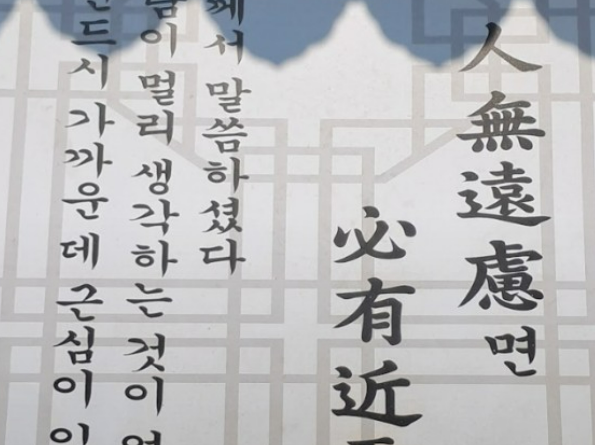 人無遠慮면
必有近
서 말씀하셨다
이 멀리 생각하는 것이
드시 가까운데 근심이